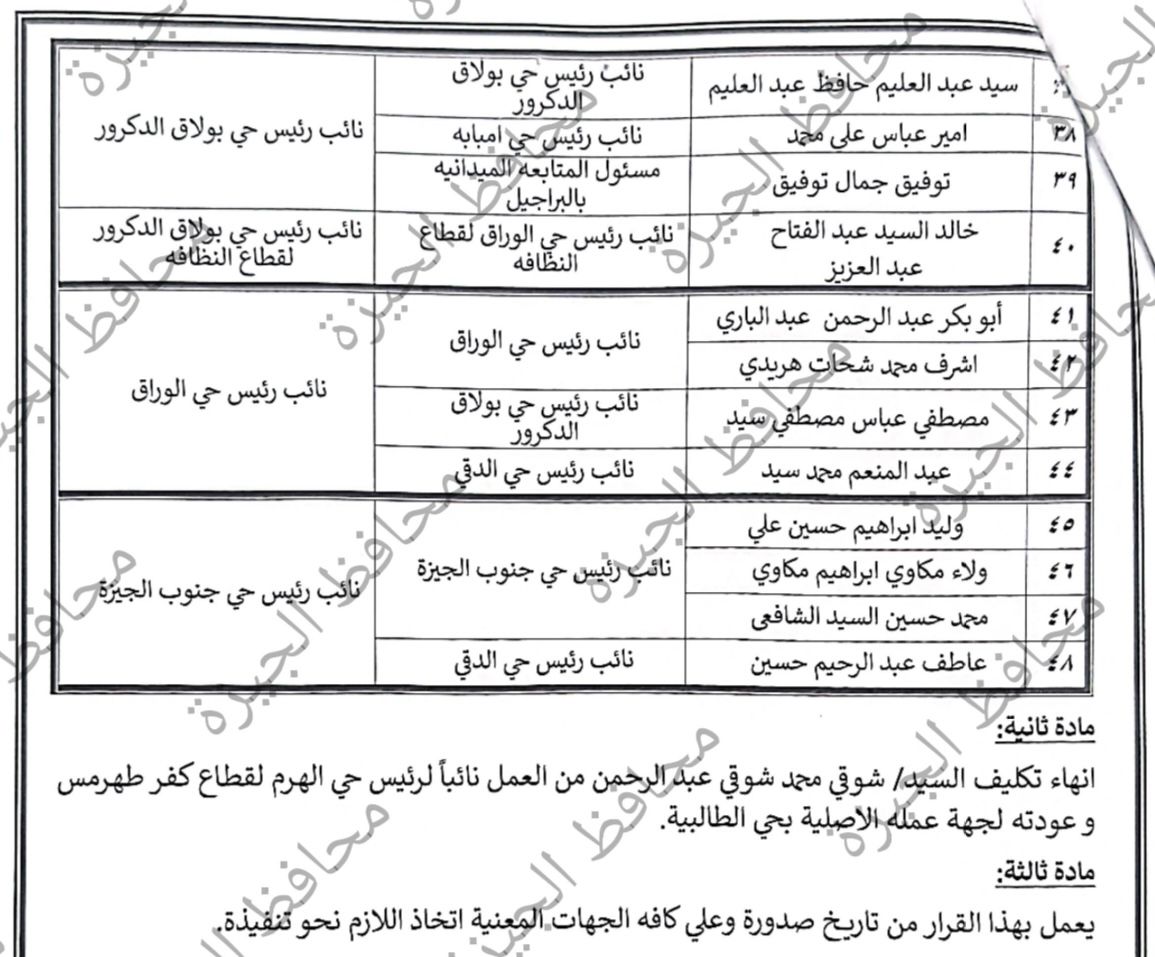 سيد عبد العليم حافظ عبد العليم
نائب رئيس حي بولاق
الدكرور
٣٨
امير عباس على محمد
نائب رئيس حي امبابه
نائب رئيس حي بولاق الدكرور
٣٩
توفيق جمال توفيق
مسئول المتابعه الميدانيه
بالبراجيل
٤٠
خالد السيد عبد الفتاح
عبد العزيز
نائب رئيس حي الوراق لقطاع
النظافه
نائب رئيس حي بولاق الدكرور
لقطاع النظافه
٤١
أبو بكر عبد الرحمن عبد الباري
نائب رئيس حي الوراق
٤٢
اشرف محمد شحات هريدي
نائب رئيس حي الوراق
٤٣
مصطفي عباس مصطفي سيد
نائب رئيس حي بولاق
الدكرور
٤٤
عبد المنعم محمد سيد
نائب رئيس حي الدقي
٤٥
وليد ابراهيم حسين علي
٤٦
ولاء مكاوي ابراهيم مكاوي
نائب رئيس حي جنوب الجيزة
نائب رئيس حي جنوب الجيزة
٤٧
محمد حسين السيد الشافعى
٤٨
عاطف عبد الرحيم حسين
نائب رئيس حي الدقي
مادة ثانية:
انهاء تكليف السيد/ شوقي محمد شوقي عبد الرحمن من العمل نائباً لرئيس حي الهرم لقطاع كفر طهرمس
و عودته لجهة عمله الاصلية بحي الطالبية.
مادة ثالثة:
يعمل بهذا القرار من تاريخ صدورة وعلي كافه الجهات المعنية اتخاذ اللازم نحو تنفيذة.
محافظ الجيزة